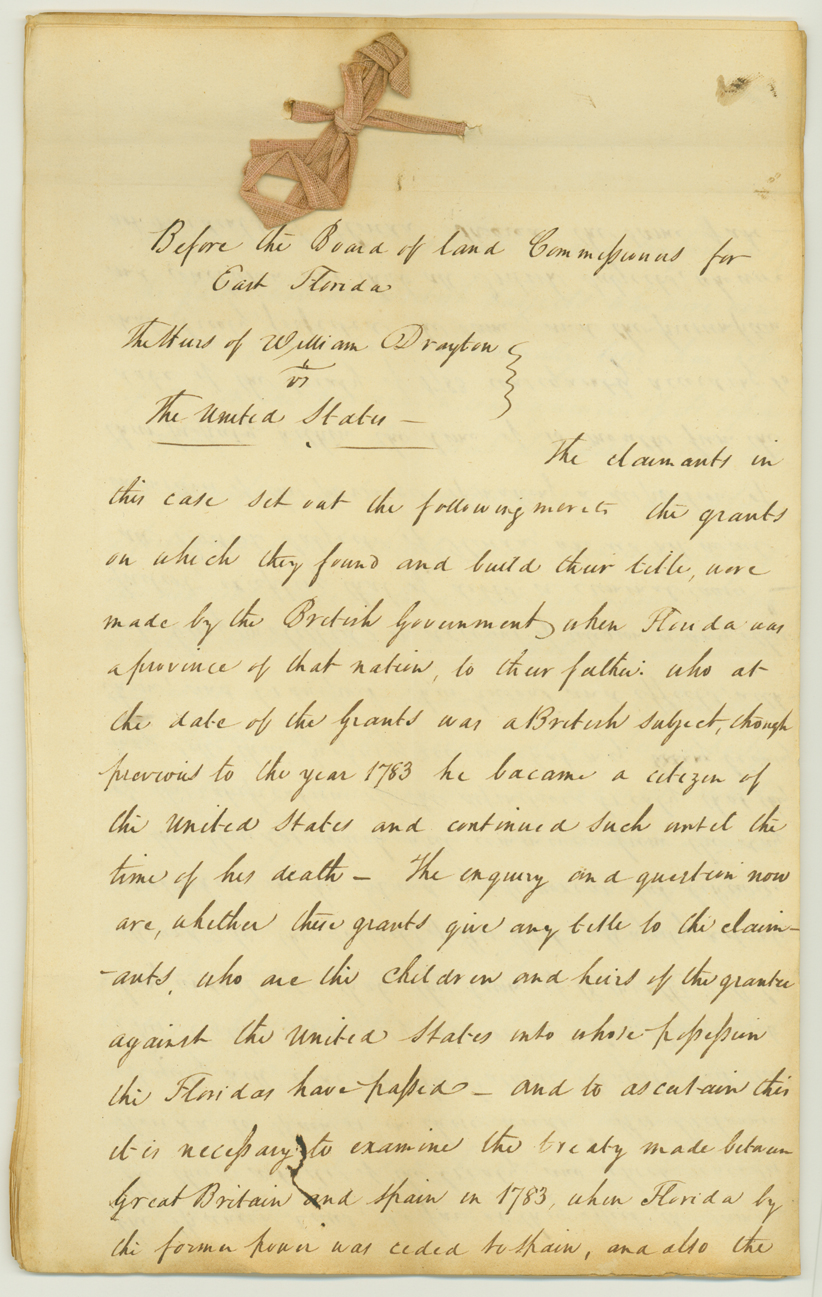 Before the Board of land Commissioners for
East Florida
The Heirs of William Drayton
vs
The United States —
The claimants in
this case set out the following the grants
on which they found and build their title, were
made by the British Government, when Florida was
a province of that nation, to their father. who at
the date of the Grants was a British subject, though
previous to the year 1783 he became a citizen of
the United States and continued such until the
time of his death — The enquiry and question now
are, whether these grants give any title to the claim-
-ants, who are the children and heirs of the grantee
against the United States into whose possession
the Floridas have passed — and to ascertain this
it is necessary to examine the treaty made between
Great Britain and Spain in 1783, when Florida by
the former power was ceded to Spain, and also the